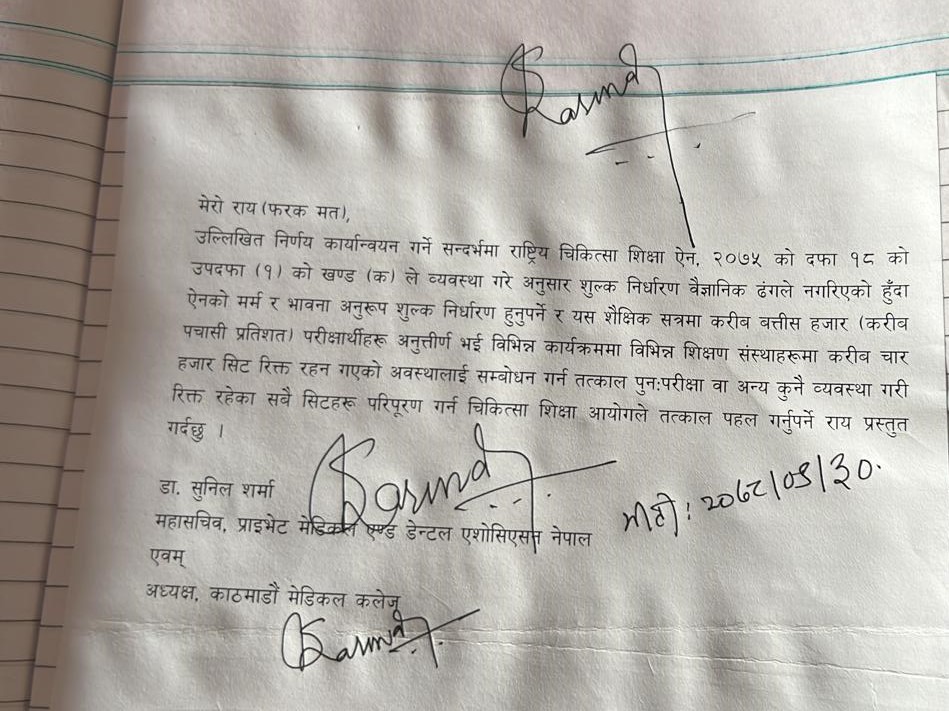 मेरो राय (फरक मत),
उल्लिखित निर्णय कार्यान्वयन गर्ने सन्दर्भमा राष्ट्रिय चिकित्सा शिक्षा ऐन, २०७५ को दफा १८ को
उपदफा (१) को खण्ड (क) ले व्यवस्था गरे अनुसार शुल्क निर्धारण वैज्ञानिक ढंगले नगरिएको हुँदा
ऐनको मर्म र भावना अनुरूप शुल्क निर्धारण हुनुपर्ने र यस शैक्षिक सत्रमा करीब बत्तीस हजार (करीब
पचासी प्रतिशत) परीक्षार्थीहरू अनुत्तीर्ण भई विभिन्न कार्यक्रममा विभिन्न शिक्षण संस्थाहरूमा करीब चार
हजार सिट रिक्त रहन गएको अवस्थालाई सम्बोधन गर्न तत्काल पुन:परीक्षा वा अन्य कुनै व्यवस्था गरी
रिक्त रहेका सबै सिटहरू परिपूरण गर्न चिकित्सा शिक्षा आयोगले तत्काल पहल गर्नुपर्ने राय प्रस्तुत
गर्दछु ।
डा. सुनिल शर्मा
महासचिव, प्राइभेट मेडिकल एण्ड डेन्टल एशोसिएसन नेपाल
एवम्
अध्यक्ष, काठमाडौं मेडिकल कलेज